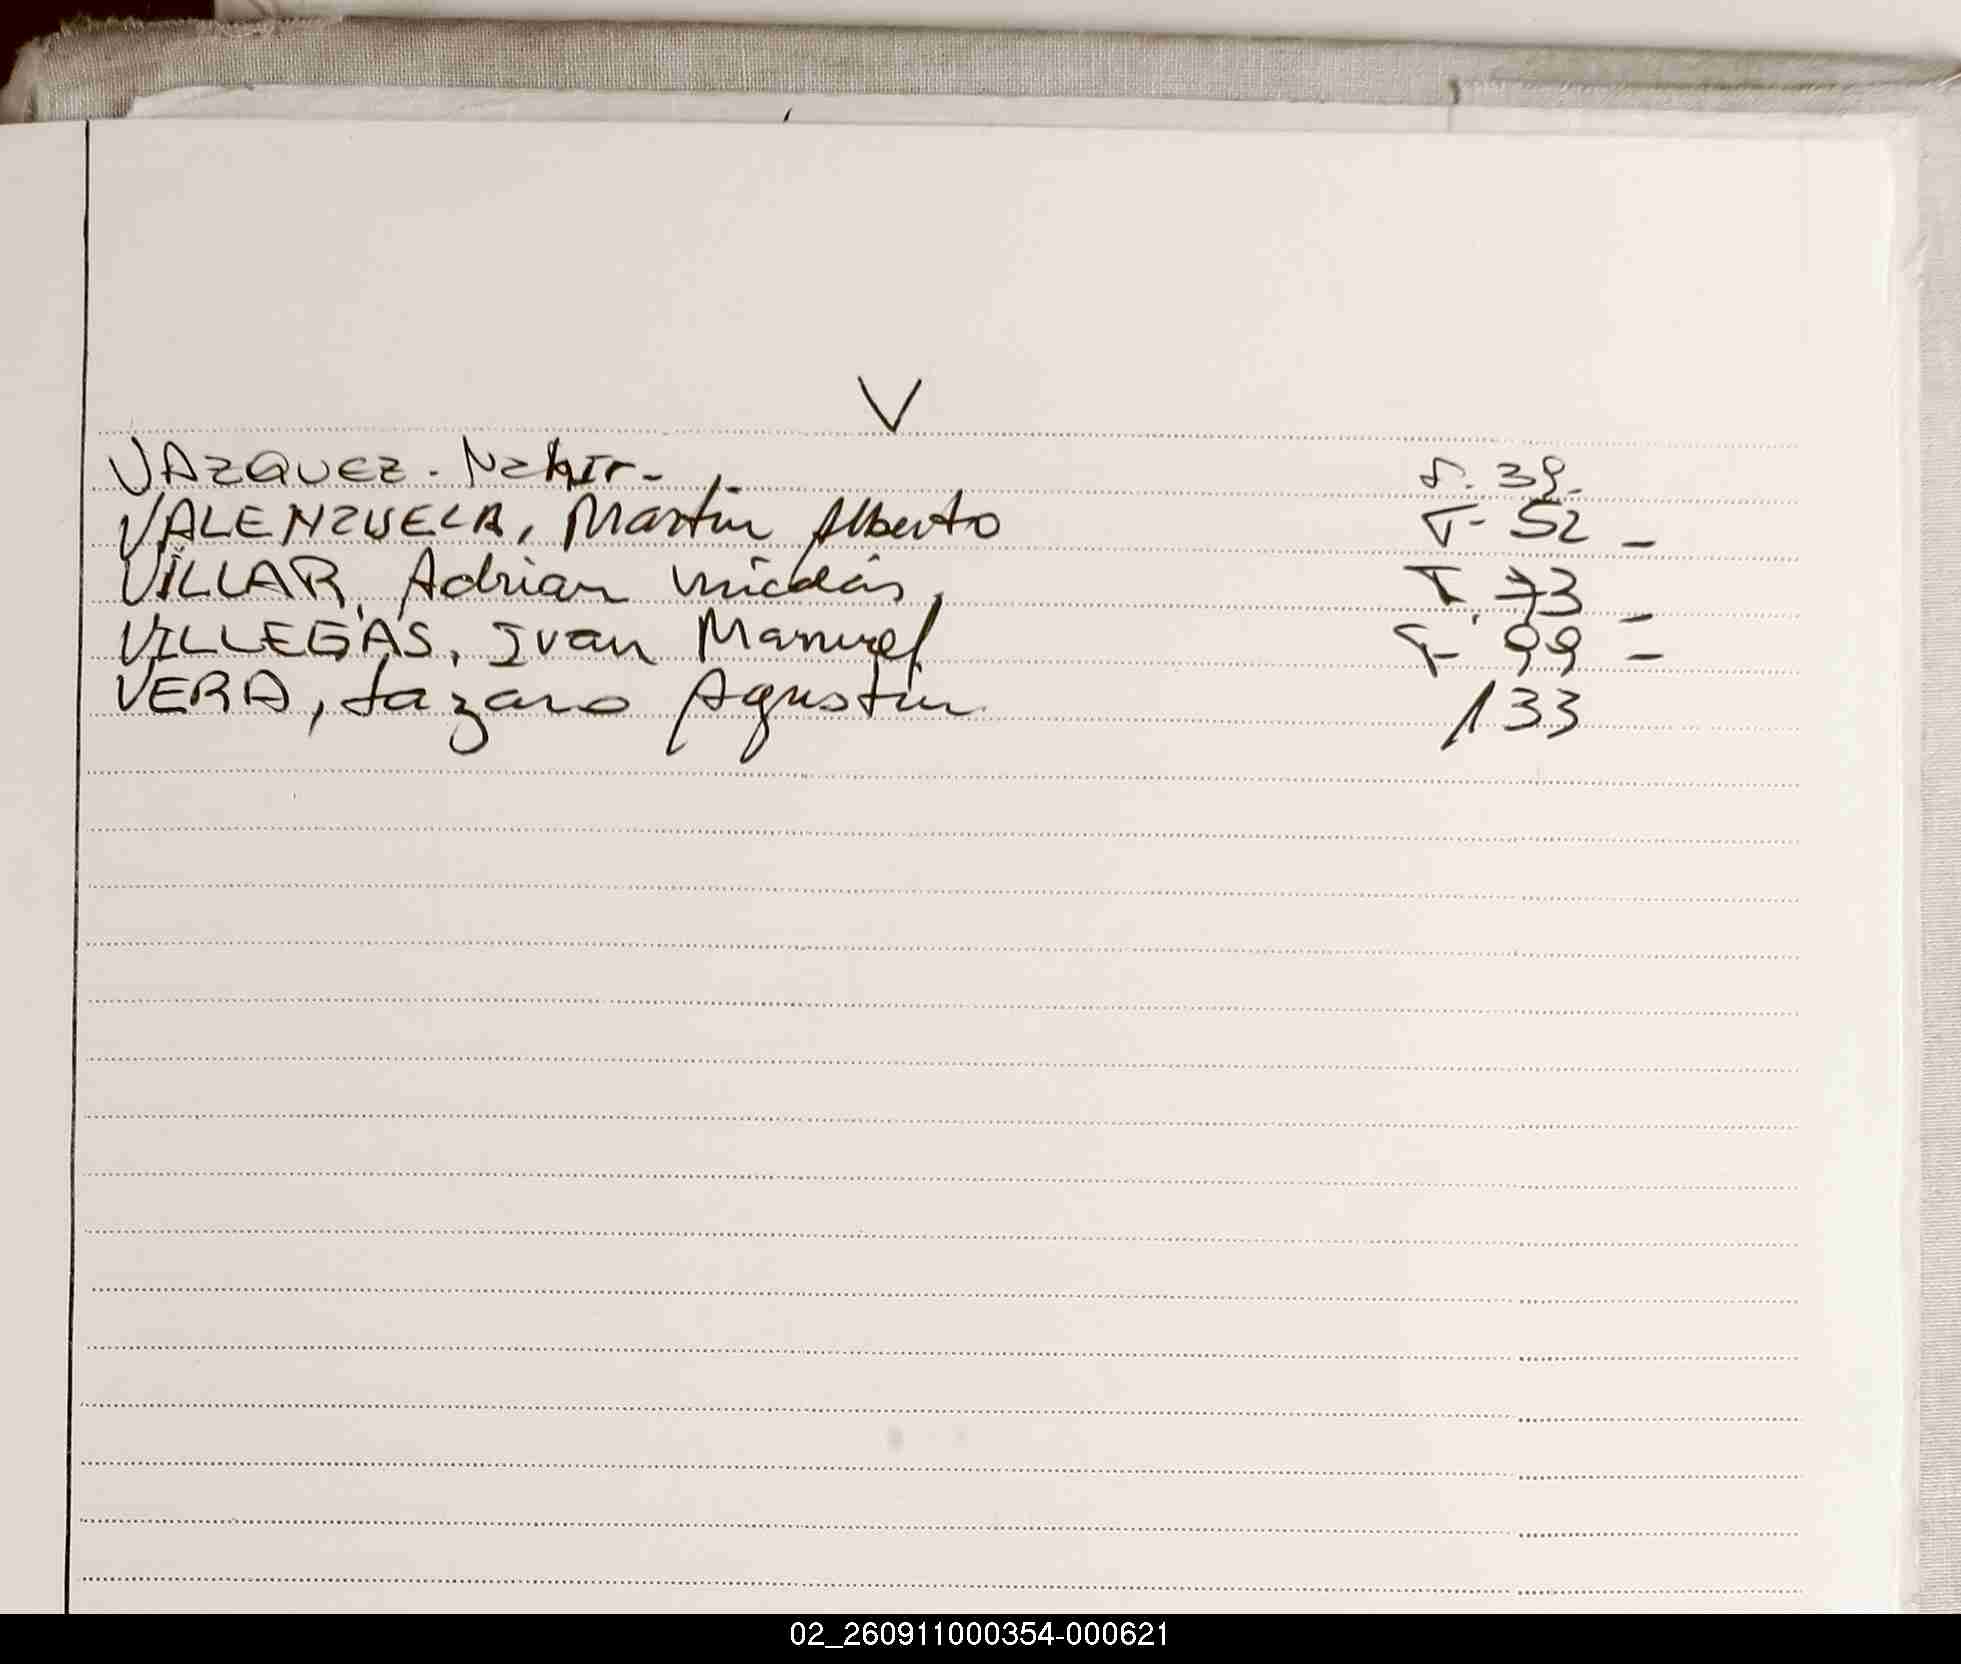 V
VAZQUEZ. Nahir- F. 39.
VALENZUELA, Martin Alberto F- 52 -
VILLAR, Adrian Nicolás. F. 73 -
VILLEGAS, Ivan Manuel F- 99 -
VERA, Lazaro Agustin 133
02_260911000354-000621